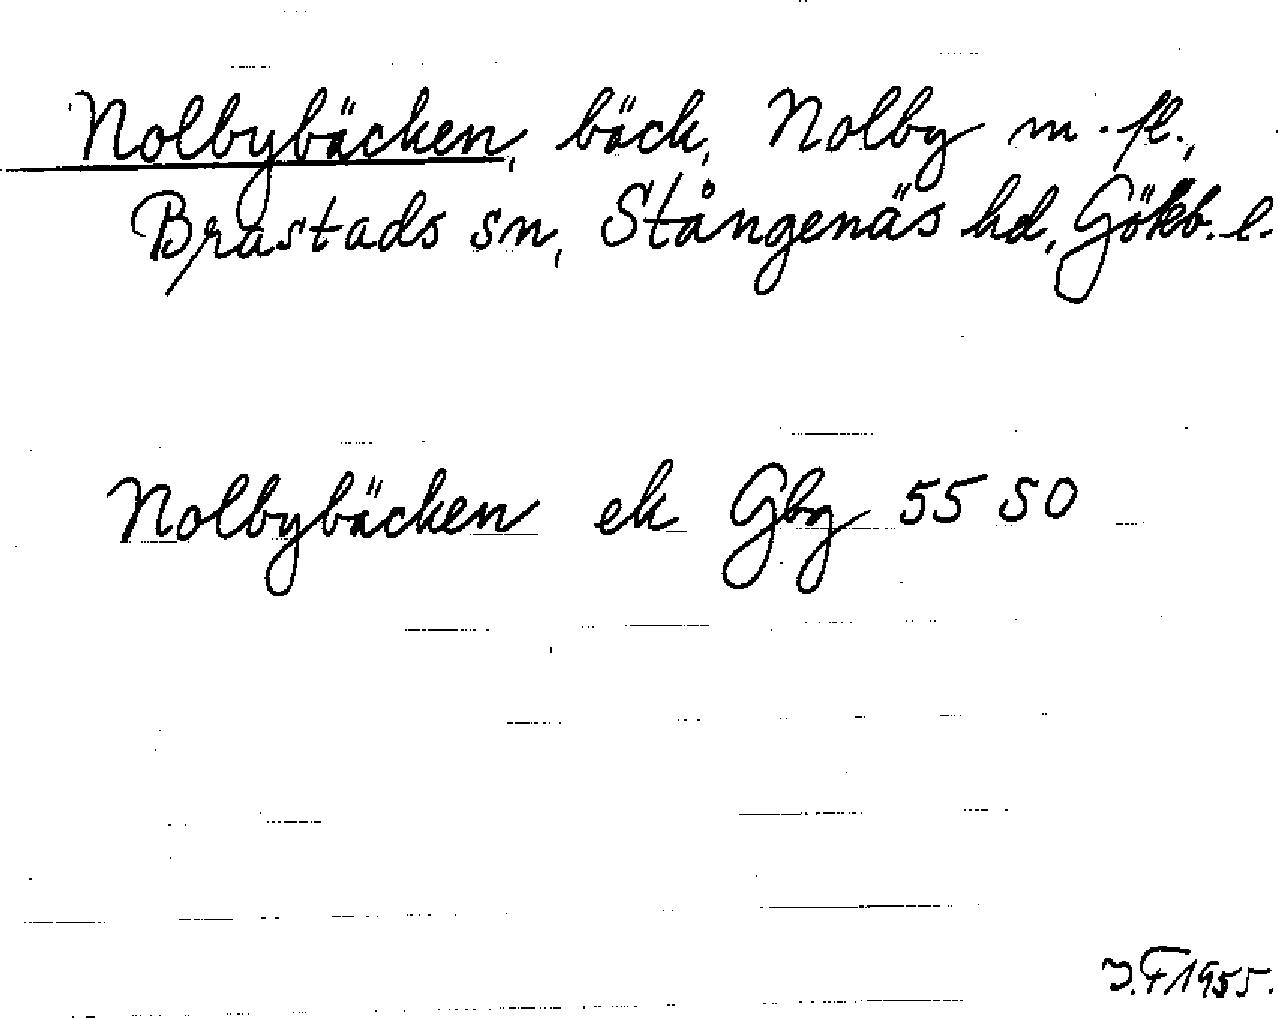 Nolbybäcken, bäck, Nolby m.fl.,
Brastads sn, Stångenäs hd, Gökb. l.
Nolbybäcken ek Gbg 55 50
I.F 1955.